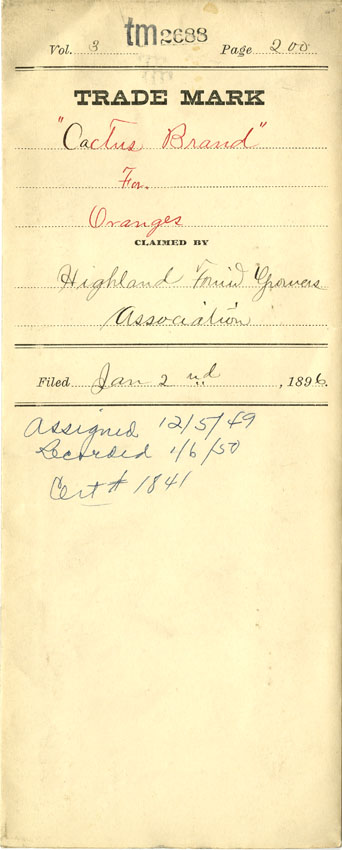 tm2688
Vol. 3 Page 200
TRADE MARK
"Cactus Brand"
For.
Oranges
CLAIMED BY
Highland Growers
Association
Filed Jan 2nd, 1896.
Assigned 12/5/49
Recorded 1/6/50
Cert # 1841